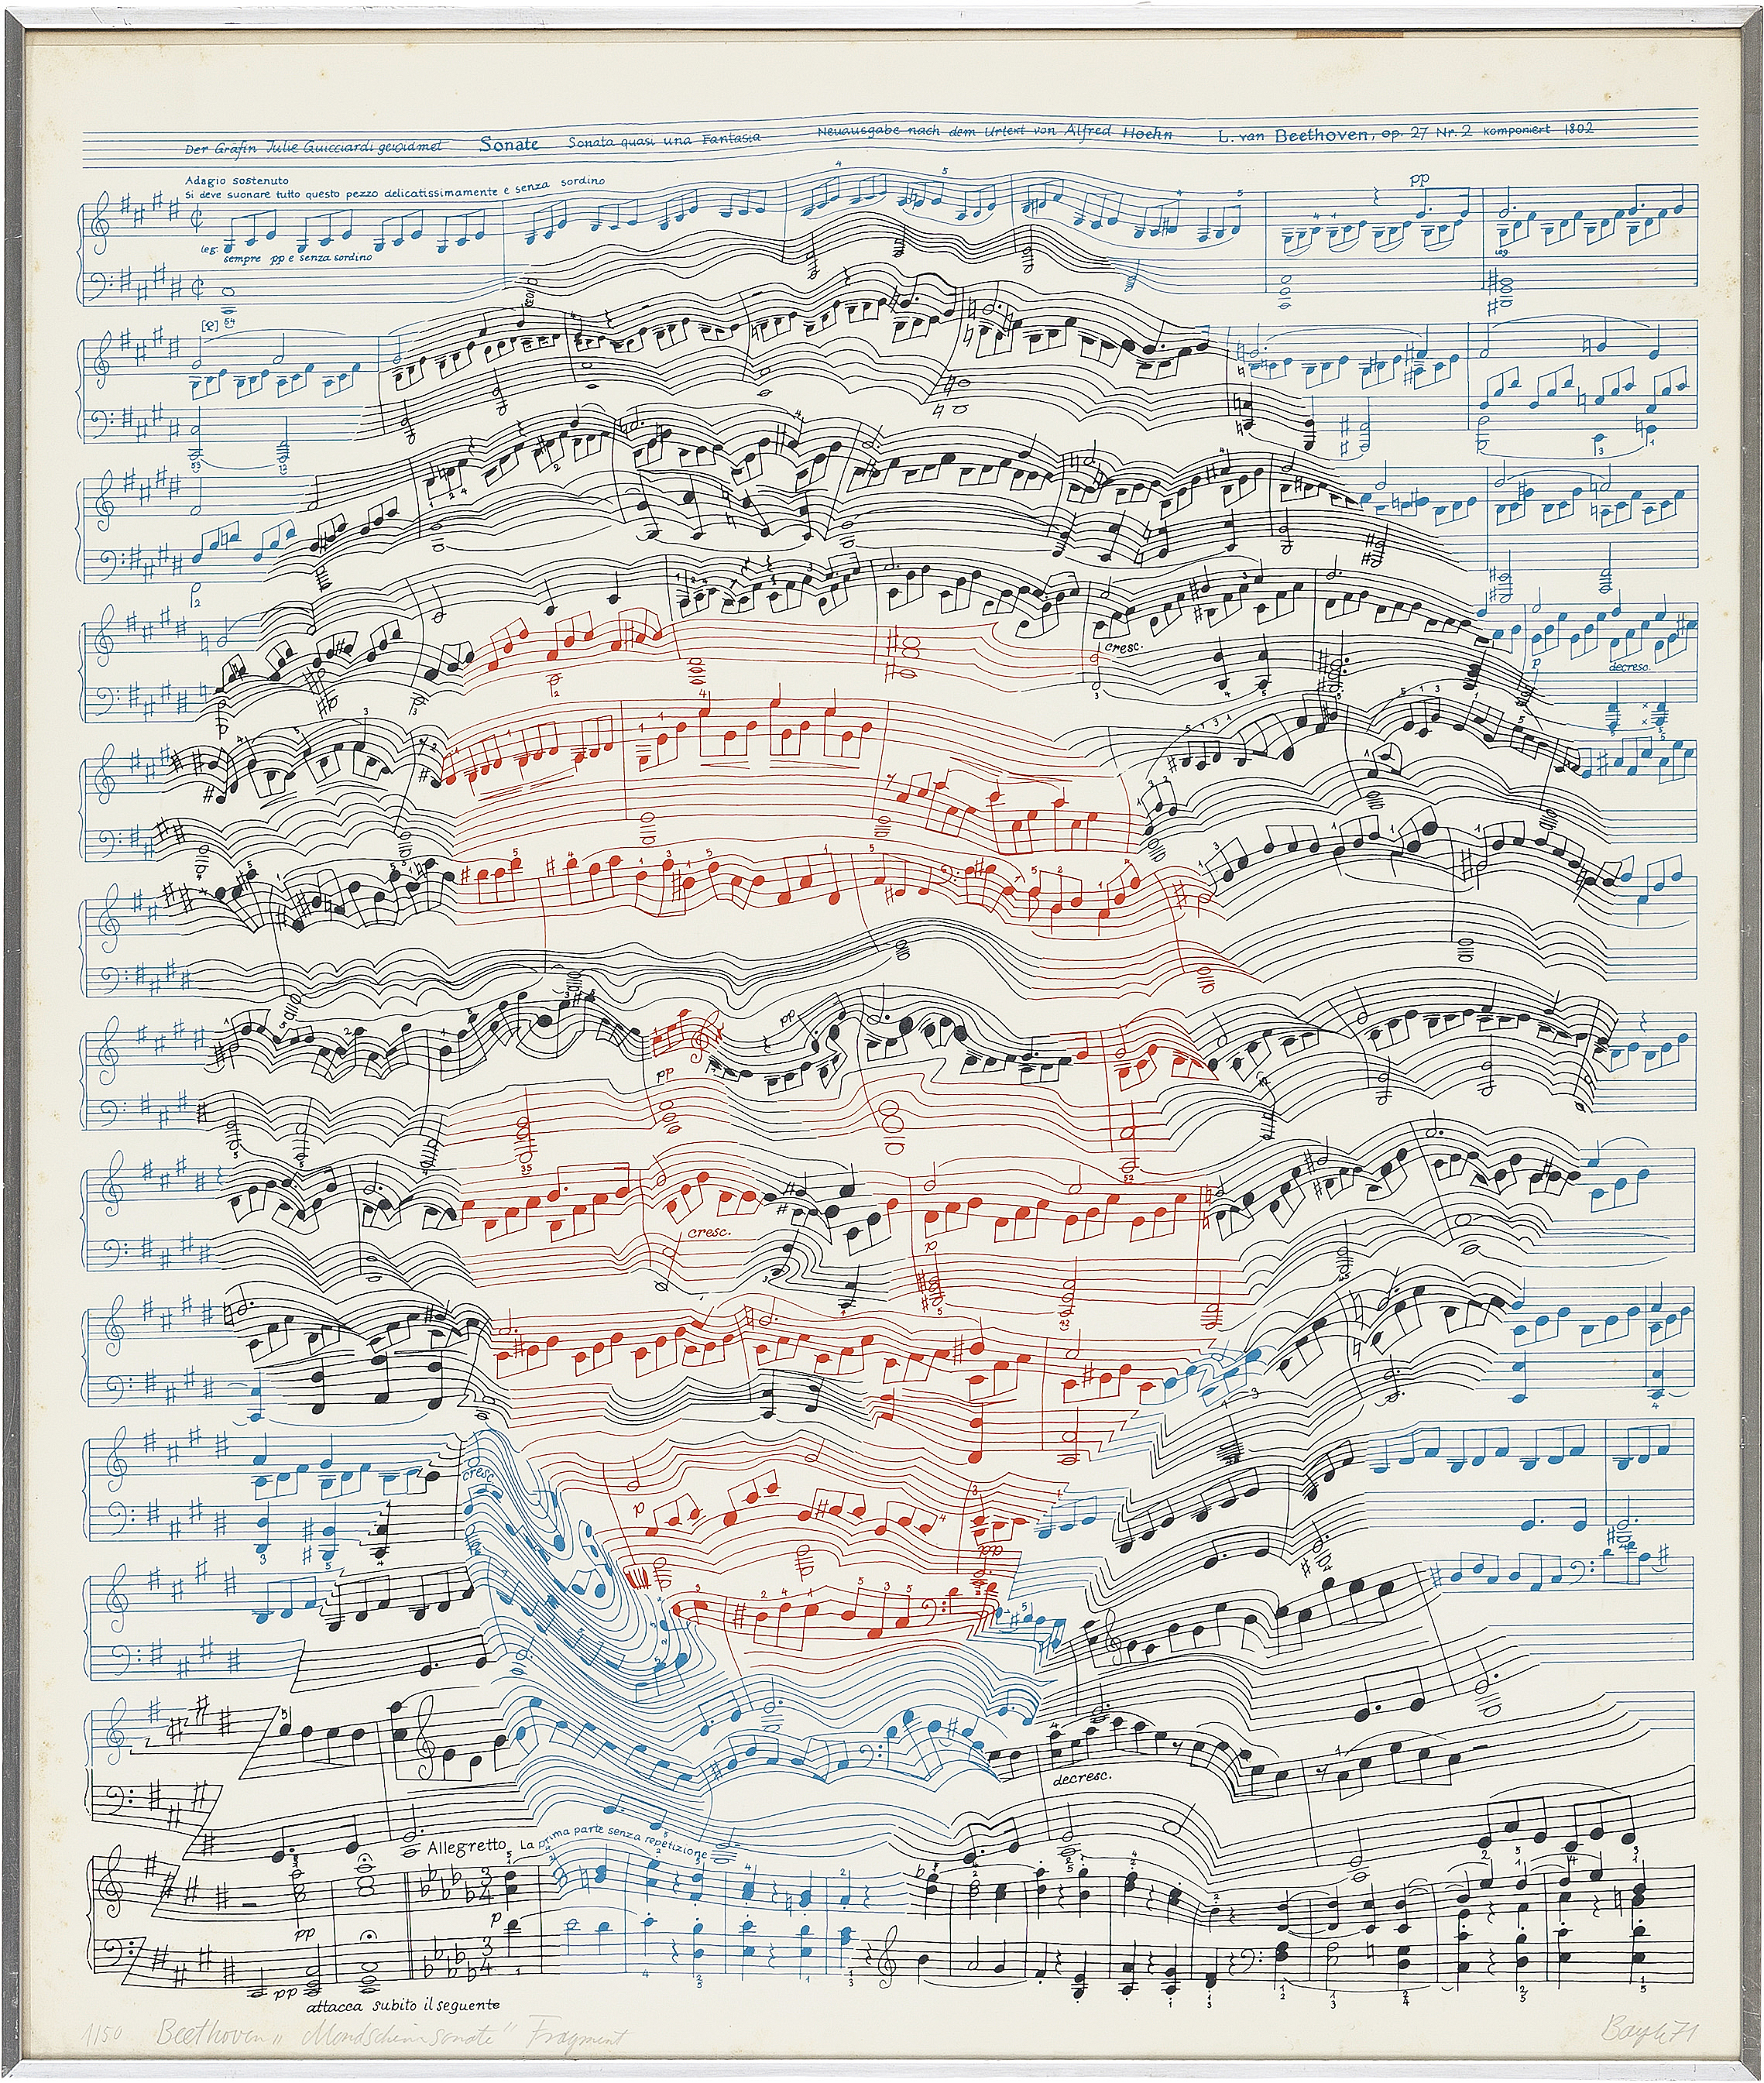 Der Gräfin Julie Guicciardi gewidmet Sonate Sonata quasi una Fantasia Neuausgabe nach dem Urtext von Alfred Hoehn L. van Beethoven, op. 27 Nr. 2 komponiert 1802
Adagio sostenuto
Si deve suonare tutto questo pezzo delicatissimamente e senza sordino
pp
leg.
sempre pp e senza sordino
leg.
cresc.
p
decresc.
p
pp
pp
cresc.
p
cresc.
p
pp
decresc.
Allegretto La prima parte senza repetizione
p
pp
pp
attacca subito il seguente
1/50 Beethoven „Mondscheinsonate" Fragment